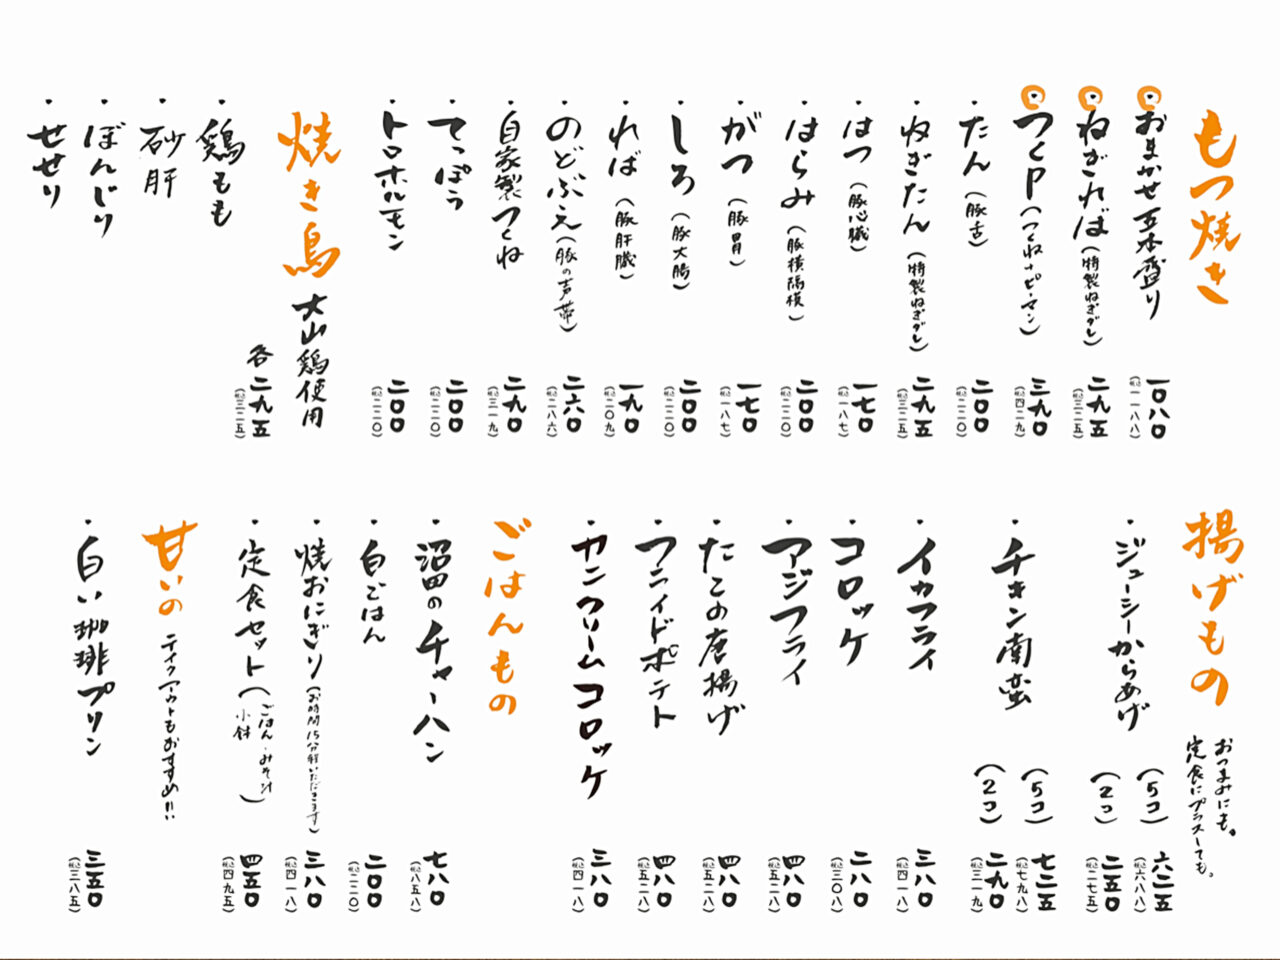 もつ焼き
おまかせ五本盛り 一〇八〇 (税込一一八八)
ねぎればは(特製ねぎダレ) 二九五 (税込三二五)
つくP(つくね+ピーマン) 三九〇 (税込四二九)
たん(豚舌) 二〇〇 (税込二二〇)
ねぎたん(特製ねぎダレ) 二九五 (税込三二五)
はつ(豚心臓) 一七〇 (税込一八七)
はらみ(豚横隔模) 二〇〇 (税込二二〇)
がつ(豚胃) 一七〇 (税込一八七)
しろ(豚大腸) 二〇〇 (税込二二〇)
れば(豚肝臓) 一九〇 (税込二〇九)
のどぶえ(豚の声帯) 二六〇 (税込二八六)
自家製つくね 二九〇 (税込三一九)
てっぽう 二〇〇 (税込二二〇)
トロホルモン 二〇〇 (税込二二〇)
焼き鳥 大山鶏使用
各二九五 (税込三二五)
鶏もも
砂肝
ぼんじり
せせり
揚げもの
おつまみにも。
定食にプラスしても。
ジューシーからあげ
(5コ) 六二五 (税込六八八)
(2コ) 二五〇 (税込二七五)
チキン南蛮
(5コ) 七二五 (税込七九八)
(2コ) 二九〇 (税込三一九)
イカフライ 三八〇 (税込四一八)
コロッケ 二八〇 (税込三〇八)
アジフライ 四八〇 (税込五二八)
たこの唐揚げ 四八〇 (税込五二八)
フライドポテト 四八〇 (税込五二八)
カニクリームコロッケ 三八〇 (税込四一八)
ごはんもの
沼田のチャーハン 七八〇 (税込八五八)
白ごはん 二〇〇 (税込二二〇)
焼おにぎり(お時間15分程いただきます) 三八〇 (税込四一八)
定食セット(ごはん・みそ汁 小鉢) 四五〇 (税込四九五)
甘いの テイクアウトもおすすめ!!
白い珈琲プリン 三五〇 (税込三八五)